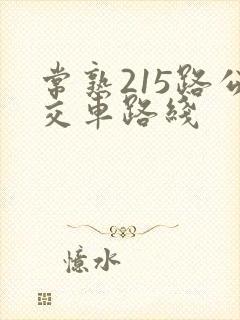 常熟215路公
交车路綫
憶水